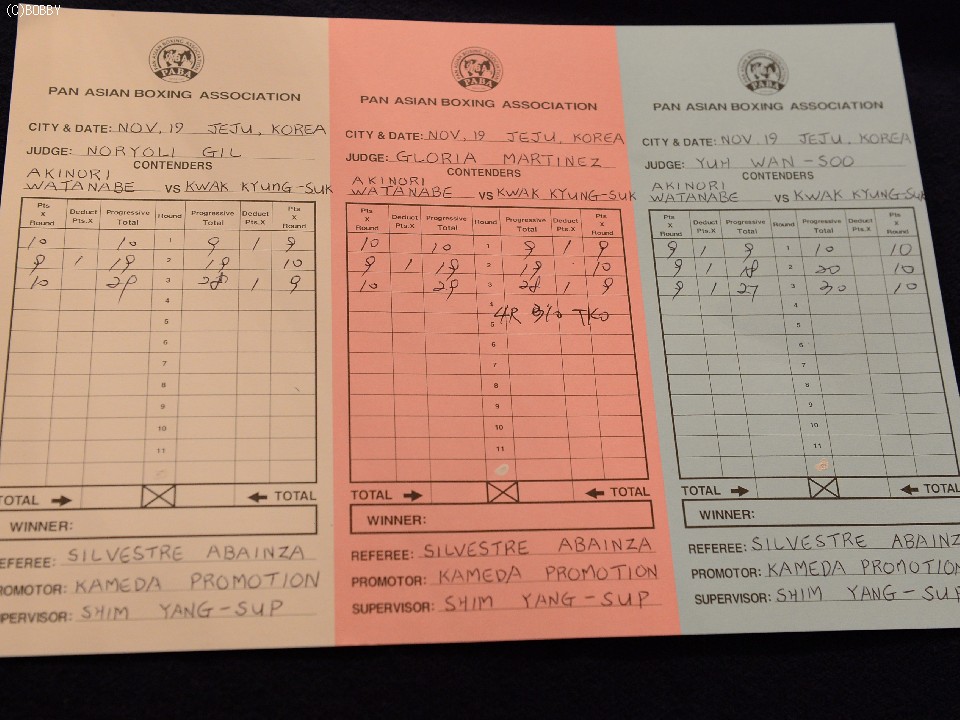 (C)BOBBY
PAN ASIAN BOXING ASSOCIATION
PABA
PAN ASIAN BOXING ASSOCIATION
CITY & DATE: NOV, 19 JEJU, KOREA
JUDGE: NORYOLI GIL
CONTENDERS
AKINORI
WATANABE VS KWAK KYUNG-SUK
Pts X Round Deduct Pts.X Progressive Total Round Progressive Total Deduct Pts.X Pts X Round
10 10 1 9 1 9
9 1 19 2 19 10
10 29 3 28 1 9
4
5
6
7
8
9
10
11
TOTAL TOTAL
WINNER:
REFEREE: SILVESTRE ABAINZA
PROMOTOR: KAMEDA PROMOTION
SUPERVISOR: SHIM YANG-SUP
PAN ASIAN BOXING ASSOCIATION
PABA
PAN ASIAN BOXING ASSOCIATION
CITY & DATE: NOV, 19 JEJU, KOREA
JUDGE: GLORIA MARTINEZ
CONTENDERS
AKINORI
WATANABE VS KWAK KYUNG-SUK
Pts X Round Deduct Pts.X Progressive Total Round Progressive Total Deduct Pts.X Pts X Round
10 10 1 9 1 9
9 1 19 2 19 10
10 29 3 28 1 9
4
4R TKO
5
6
7
8
9
10
11
TOTAL TOTAL
WINNER:
REFEREE: SILVESTRE ABAINZA
PROMOTOR: KAMEDA PROMOTION
SUPERVISOR: SHIM YANG-SUP
PAN ASIAN BOXING ASSOCIATION
PABA
PAN ASIAN BOXING ASSOCIATION
CITY & DATE: NOV 19 JEJU, KOREA
JUDGE: YUH WAN-SOO
CONTENDERS
AKINORI
WATANABE VS KWAK KYUNG-SUK
Pts X Round Deduct Pts.X Progressive Total Round Progressive Total Deduct Pts.X Pts X Round
9 1 9 1 10 10
9 1 18 2 20 10
9 1 27 3 30 10
4
5
6
7
8
9
10
11
TOTAL TOTAL
WINNER:
REFEREE: SILVESTRE ABAINZ
PROMOTOR: KAMEDA PROMOTION
SUPERVISOR: SHIM YANG-SUP